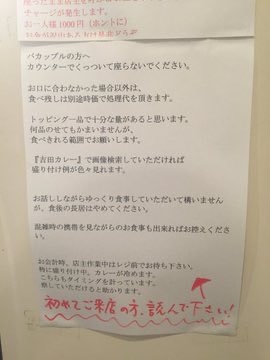 チャージが発生します。
お一人様1000円（ホントに）
バカップルの方へ
カウンターでくっついて座らないでください。
お口に合わなかった場合以外は、
食べ残しは別途時価で処理代を頂きます。
トッピング一品で十分な量があると思います。
何品のせてもかまいませんが、
食べきれる範囲でお願いします。
『吉田カレー』で画像検索していただければ
盛り付け例が色々見れます。
お話ししながらゆっくり食事していただいて構いません
が、食後の長居はやめてください。
混雑時の携帯を見ながらのお食事も出来ればお控えくだ
さい。
お会計時、店主作業中はレジ前でお待ち下さい。
特に盛り付け中。カレーが冷めます。
こちらもタイミングを計っています。
察していただけると助かります。
初めてご来店の方、読んで下さい!